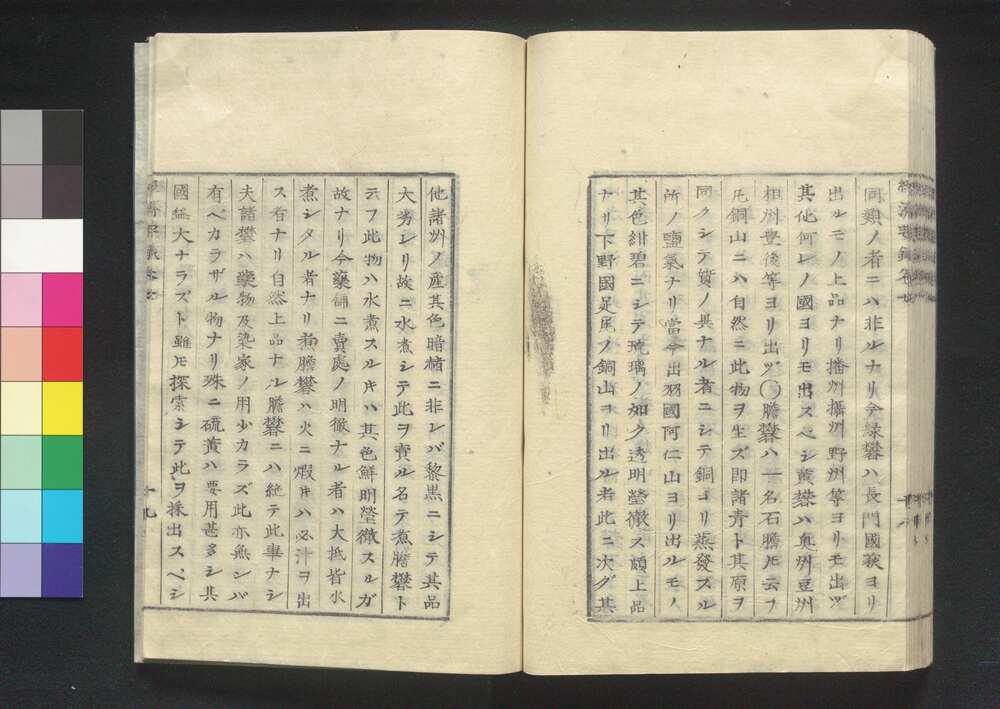 同類ノ者ニハ非ルナリ今緑礬ハ長門國萩ヨリ
出ルモノ上品ナリ播州攝州野州等ヨリモ出ヅ
其他何レノ國ヨリモ出スベシ黄礬ハ奥州豆州
相州豊後等ヨリ出ヅ〇膽礬ハ一名石膽𪜈云フ
凡銅山ニハ自然ニ此物ヲ生ズ即諸青ト其原ヲ
同クシテ質ノ異ナル者ニシテ銅ヨリ蒸發スル
所ノ鹽氣ナリ當今出羽國阿仁山ヨリ出ルモノ
其色紺碧ニシテ琉璃ノ如ク透明瑩徹ス頗上品
ナリ下野國足尾ノ銅山ヨリ出ル者此ニ次グ其
他諸州ノ産其色暗緒ニ非レバ黎黒ニシテ其品
大劣レリ故ニ水煮シテ此ヲ賣ル名テ煮膽礬ト
云フ此物ハ水煮スル𪜈ハ其色鮮明瑩徹スルガ
故ナリ今藥舗ニ賣處ノ明徹ナル者ハ大抵皆水
煮シタル者ナリ煮膽礬ハ火ニ煆𪜈ハ必汁ヲ出
ス者ナリ自然上品ナル膽礬ニハ絶テ此事ナシ
夫諸礬ハ藥物及染家ノ用少カラズ此亦無レバ
有ベカラザル物ナリ殊ニ硫黄ハ要用甚多シ其
國益大ナラズト雖𪜈探索シテ此ヲ採出スベシ
十九